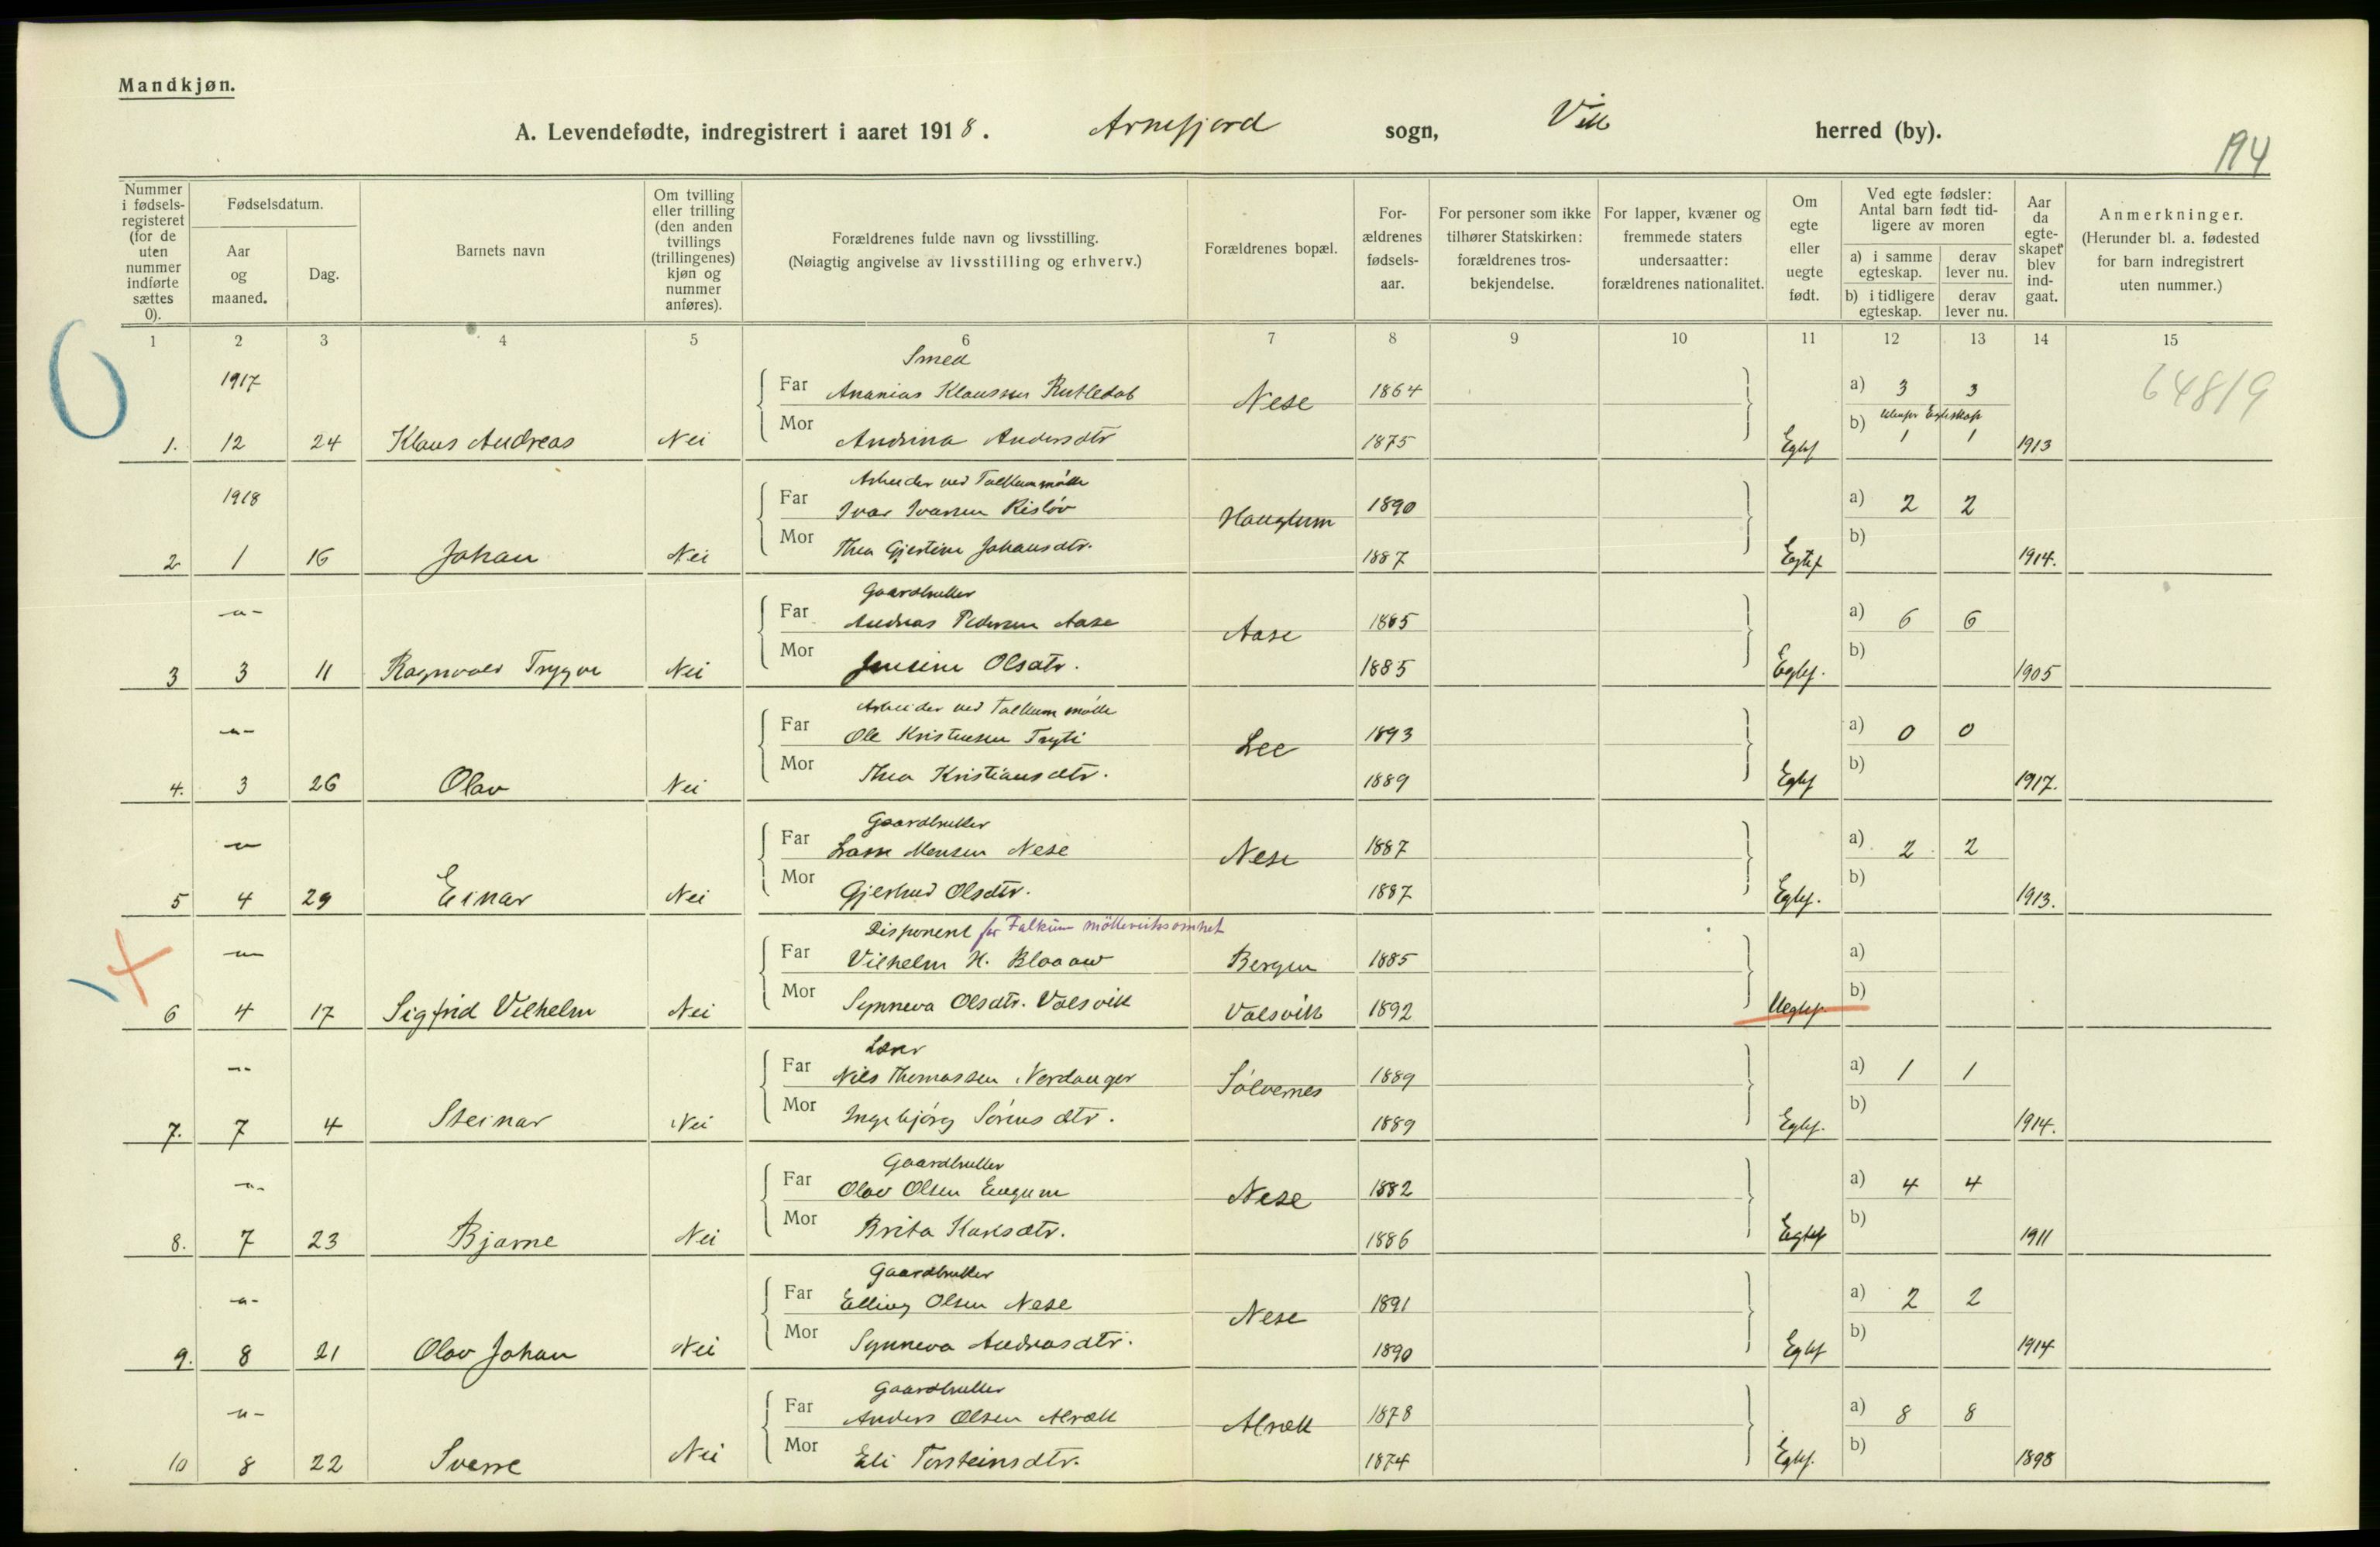 Mandkjøn.
A. Levendefødte, indregistrert i aaret 1918. Arnefjord sogn, Vik herred (by).
194
Nummer i fødselsregisteret (for de uten nummer indførte sættes 0).
Fødselsdatum.
Aar og maaned.
Dag.
Barnets navn
Om tvilling eller trilling (den anden tvillings (trillingenes) kjøn og nummer anføres).
Forældrenes fulde navn og livsstilling.
(Nøiagtig angivelse av livsstilling og erhverv.)
Forældrenes bopæl.
Forældrenes fødselsaar.
For personer som ikke tilhører Statskirken: forældrenes trosbekjendelse.
For lapper, kvæner og fremmede staters undersaatter: forældrenes nationalitet.
Om egte eller uegte født.
Ved egte fødsler: Antal barn født tidligere av moren
a) i samme egteskap. derav lever nu.
b) i tidligere egteskap. derav lever nu.
Aar da egteskapet blev indgaat.
Anmerkninger.
(Herunder bl. a. fødested for barn indregistrert uten nummer.)
1 2 3 4 5 6 7 8 9 10 11 12 13 14 15
Smed
1917 Far Ananias Klaussen Rutledal Nese 1864 a) 3 3 64819
utenfor Egteskap
1. 12 24 Klaus Andreas Nei Mor Andrina Andersdtr 1875 Egtef b) 1 1 1913
Arbeider ved Talkummølle
1918 Far Ivar Ivarsen Risløv Hauglum 1890 a) 2 2
2 1 16 Johan Nei Mor Thea Gjertine Johansdtr. 1887 Egtef b) 1914.
Gaardbruker
-"- Far Andreas Pedersen Aase Aase 1865 a) 6 6
3 3 11 Ragnvald Trygve Nei Mor Jensine Olsdtr. 1885 Egtef. b) 1905
Arbeider ved Talkum mølle
-"- Far Ole Kristensen Tryti Lee 1893 a) 0 0
4. 3 26 Olav Nei Mor Thea Kristiansdtr. 1889 Egtef b) 1917.
Gaardbruker
-"- Far Lasse Monsen Nese Nese 1887 a) 2 2
5 4 29 Einar Nei Mor Gjertrud Olsdtr. 1887 Egtef. b) 1913.
Disponent for Talkum möllevirksomhet
-"- Far Vilhelm H. Blaauw Bergen 1885 a)
6 4 17 Sigfrid Vilhelm Nei Mor Synneva Olsdtr. Valsvik Valsvik 1892 Uegtef. b)
Lærer
-"- Far Nils Thomassen Nordanger Sølvernes 1889 a) 1 1
7. 7 4 Steinar Nei Mor Ingebjørg Sørensdtr. 1889 Egtef. b) 1914.
Gaardbruker
-"- Far Olav Olsen Engum Nese 1882 a) 4 4
8. 7 23 Bjarne Nei Mor Brita Karlsdtr. 1886 Egtef b) 1911
Gaardbruker
-"- Far Elling Olsen Nese Nese 1891 a) 2 2
9. 8 21 Olav Johan Nei Mor Synneva Andreasdtr. 1890 Egtef b) 1914
Gaardbruker
-"- Far Anders Olsen Alræk Alræk 1878 a) 8 8
10 8 22 Sverre Nei Mor Eli Torsteinsdtr. 1874 Egtef. b) 1898